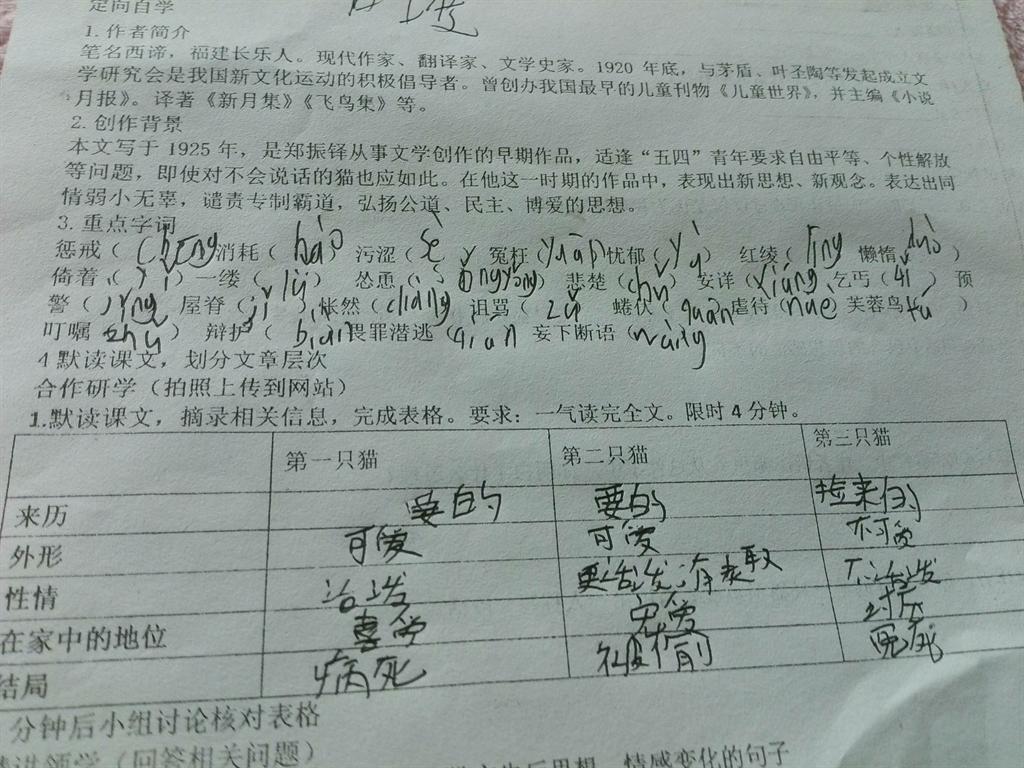 定向自学
1. 作者简介
笔名西谛，福建长乐人。现代作家、翻译家、文学史家。1920 年底，与茅盾、叶圣陶等发起成立文
学研究会是我国新文化运动的积极倡导者。曾创办我国最早的儿童刊物《儿童世界》，并主编《小说
月报》。译著《新月集》《飞鸟集》等。
2. 创作背景
本文写于 1925 年，是郑振铎从事文学创作的早期作品，适逢“五四”青年要求自由平等、个性解放
等问题，即使对不会说话的猫也应如此。在他这一时期的作品中，表现出新思想、新观念。表达出同
情弱小无辜，谴责专制霸道，弘扬公道、民主、博爱的思想。
3. 重点字词
惩戒（ chéng 消耗（ hào 污涩（ sè ）冤枉（ yuān 忧郁（ yù ） 红绫（ líng 懒惰 duò ）
倚着（ yǐ ）一缕（ lǚ ） 怂恿（ sǒngyǒng） 悲楚（ chǔ ） 安详（ xiáng 乞丐（ ） 预
警（ jǐng ） 屋脊（ jǐ ）怅然（ chàng 诅骂（ zǔ 蜷伏（ quán 虐待（nüè 芙蓉鸟 fú ）
叮嘱 zhǔ ） 辩护（ biàn 畏罪潜逃（ qián ） 妄下断语（ wàng
4 默读课文，划分文章层次
合作研学（拍照上传到网站）
1.默读课文，摘录相关信息，完成表格。要求：一气读完全文。限时 4 分钟。
第一只猫 第二只猫 第三只猫
来历 要的 要的 捡来的
外形 可爱 可爱 不可爱
性情 活泼 更活泼 有趣 不活泼
在家中的地位 喜爱 宠爱 讨厌
结局 病死 被偷 冤死
分钟后小组讨论核对表格
精讲领学（回答相关问题）
思想、情感变化的句子